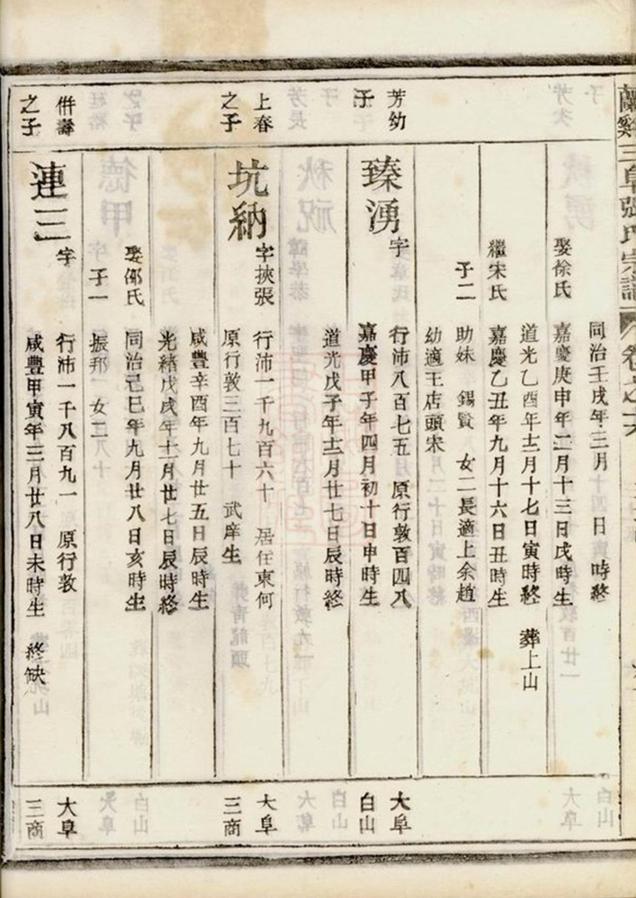 蘭谿三阜張氏宗譜 卷之六
同治壬戌年三月 日 時終
娶徐氏 嘉慶庚申年二月十三日戌時生
道光乙酉年十二月十七日寅時終 葬上山
繼宋氏 嘉慶乙丑年九月十六日丑時生
子二 助妹 錫賢 女二長適上余趙
幼適王店頭宋
芳幼 字 行沛八百七五 原行敦百四八 大阜
子 臻湧 嘉慶甲子年四月初十日申時生 白山
道光戊子年十二月廿七日辰時終
上春 字挾張 行沛一千九百六十 居住東何 大阜
之子 坑納 原行敦三百七十 武庠生 三商
咸豐辛酉年九月廿五日辰時生
光緒戊戌年十一月廿七日辰時終
娶邵氏 同治己巳年九月廿八日亥時生
子一 振邦 女二
倂壽 字 行沛一千八百九一 原行敦 大阜
之子 連三 咸豐甲寅年三月廿八日未時生 終缺 三商